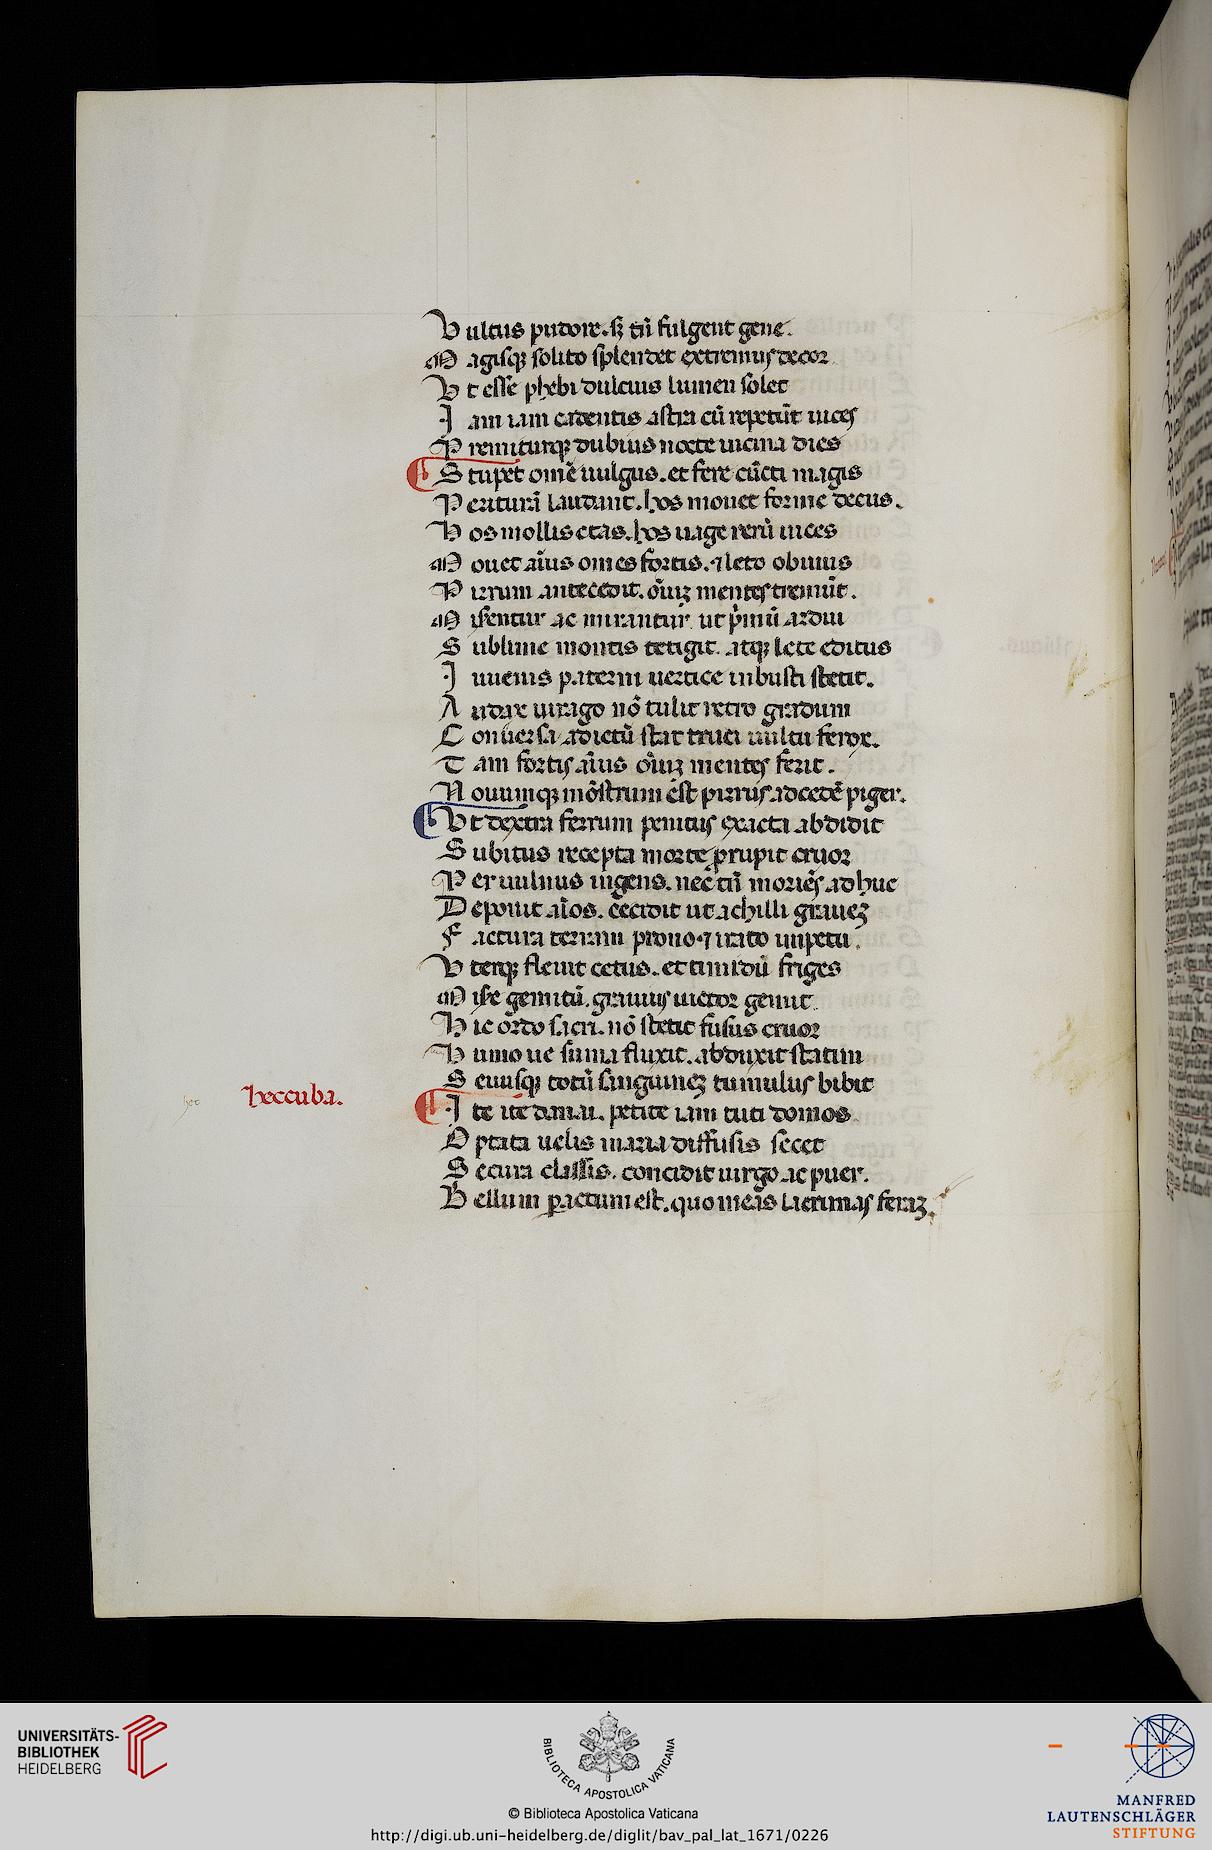 Vultus pudore. sꝫ tn̄ fulgent gene.
Magisqꝫ solito splendet extremus decor
Vt esse phebi dulcius lumen solet
Iam iam cadentis astra cū repetūt uices
Premiturqꝫ dubius nocte uicina dies
Stupet om̄e uulgus. et fere cūcti magis
Peritura laudant. hos mouet forme decus.
Hos mollis etas. hos uage rerū uices
Mouet aīus om̄es fortis. ⁊ leto obuius
Pirrum antecedit. oīuꝫ mentes tremūt.
Miserentur ac mirantur ut pͥmū ardui
Sublime montis tetigit. atqꝫ lete editus
Iuuenis paterni uertice in busti stetit.
Audax uirago nō tulit retro gradum
Conuersa ad ictū stat truci uultu ferox.
Tam fortis aīus oīuꝫ mentes ferit.
Nouumqꝫ mōstrum ḗst pirrus ad cedē piger.
Vt dextra ferrum penitus exacta abdidit
Subitus recepta morte prupit cruor
Per uulnus ingens. nec tn̄ moriēs adhuc
Deponit aīos. cecidit ut achilli grauēꝫ
Factura terram prono ⁊ irato impetu.
Vterqꝫ fleuit cetus. et timidū friges
Misere gemitū. grauius uictor gemit
Hic ordo sacri. nō stetit fusus cruor
Humo ue suma fluxit. abduxit statim
Seuusqꝫ totū sanguinēꝫ tumulus bibit
heccuba.
Ite ite danai. petite iam tuti domos.
Optata uelis maria diffusis secet
Secura classis. concidit uirgo ac puer.
Bellum pactum est. quo meas lacrimas feraꝫ.
UNIVERSITÄTS-
BIBLIOTHEK
HEIDELBERG
BIBLIOTECA APOSTOLICA VATICANA
© Biblioteca Apostolica Vaticana
http://digi.ub.uni-heidelberg.de/diglit/bav_pal_lat_1671/0226
MANFRED
LAUTENSCHLÄGER
STIFTUNG